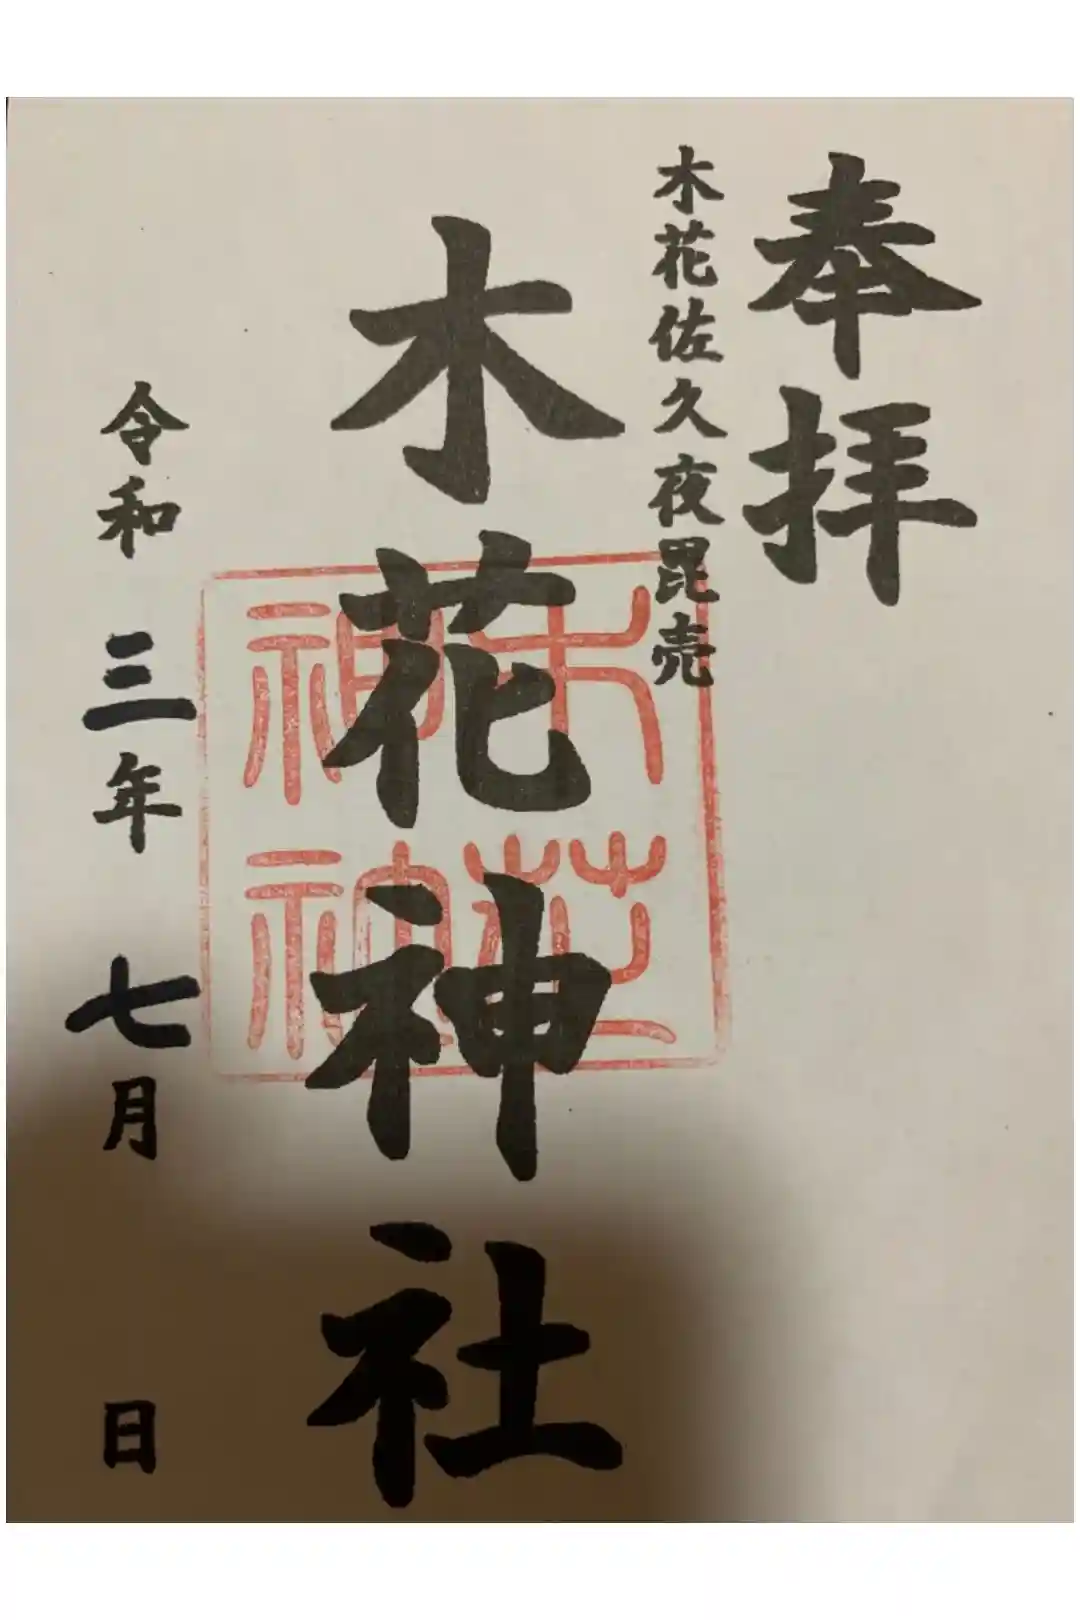 奉拝
木花佐久夜毘売
木花神社
令和三年七月 日
木花
神社